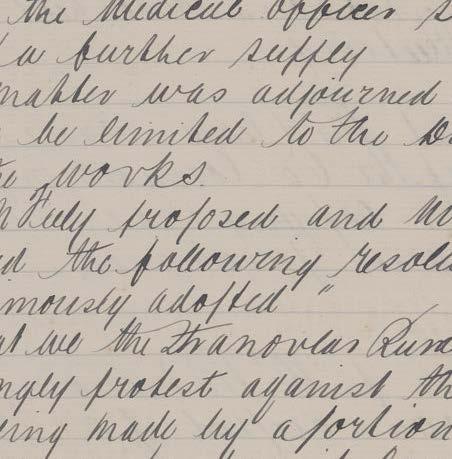 the Medical Officer s
a further supply
matter was adjourned
be limited to the D
works.
Fuly proposed and M
the following resol
imously adopted "
at we the Stranorlar Rura
ngly protest against th
eing made by a portion